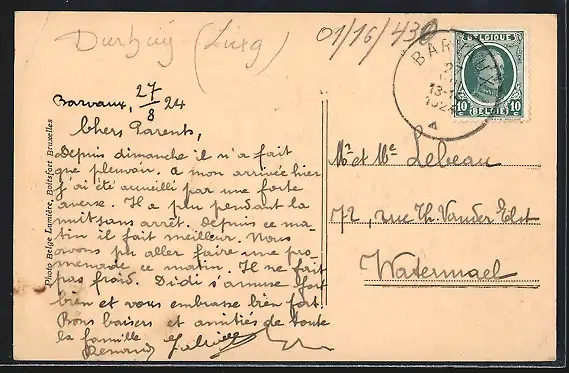 Durbuy (Luxg)
01/16/430
Barvaux, 27/8 24
Chers Parents,
Depuis dimanche il n'a fait
que pleuvoir. A mon arrivée hier
j'ai été accueilli par une forte
averse. Il a plu pendant la
nuit sans arrêt. Depuis ce ma-
tin il fait meilleur. Nous
avons pu aller faire une pro-
menade ce matin. Il ne fait
pas froid. Didi s'amuse fort
bien et vous embrasse bien fort
Bons baisers et amitiés de toute
la famille
Photo Belge Lumière, Boitsfort Bruxelles
BELGIQUE
10 10
BELGIË
BAR
1924
Mr et Me Lebeau
72, rue Th. Vander Elst
Watermael